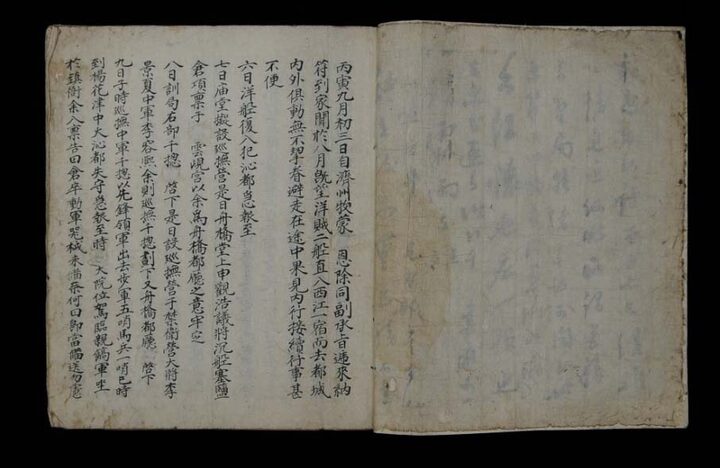 丙寅九月初三日自濟州牧蒙 恩除同副承旨遞來納
符到家聞於八月旣望洋賊二船直入西江一宿而去都城
內外俱動無不挈眷避走在途中果見內行接續行事甚
不便
六日洋船復入犯沁都急報至
七日庙堂擬設巡撫營是日舟橋堂上申觀浩議將沉船塞鹽
倉項稟于 雲峴宮以余爲舟橋都廳之意牢定
八日訓局右部千摠 啓下是日設巡撫營于禁衛營大將李
景夏中軍李容熙余則巡撫千摠劃下又舟橋都廳 啓下
九日子時巡撫中軍千摠以先鋒領軍出去步軍五哨馬兵一哨巳時
到楊花津中火沁都失守急報至時 大院位駕臨親犒軍坐
於鎭衙余入稟告曰倉卒動軍器械未備奈何曰卽當備送勿慮